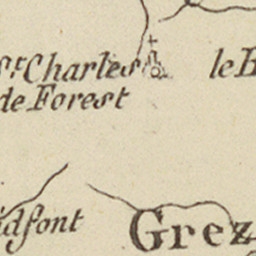 St. Charles
de Forest
le B
idfont
Grez